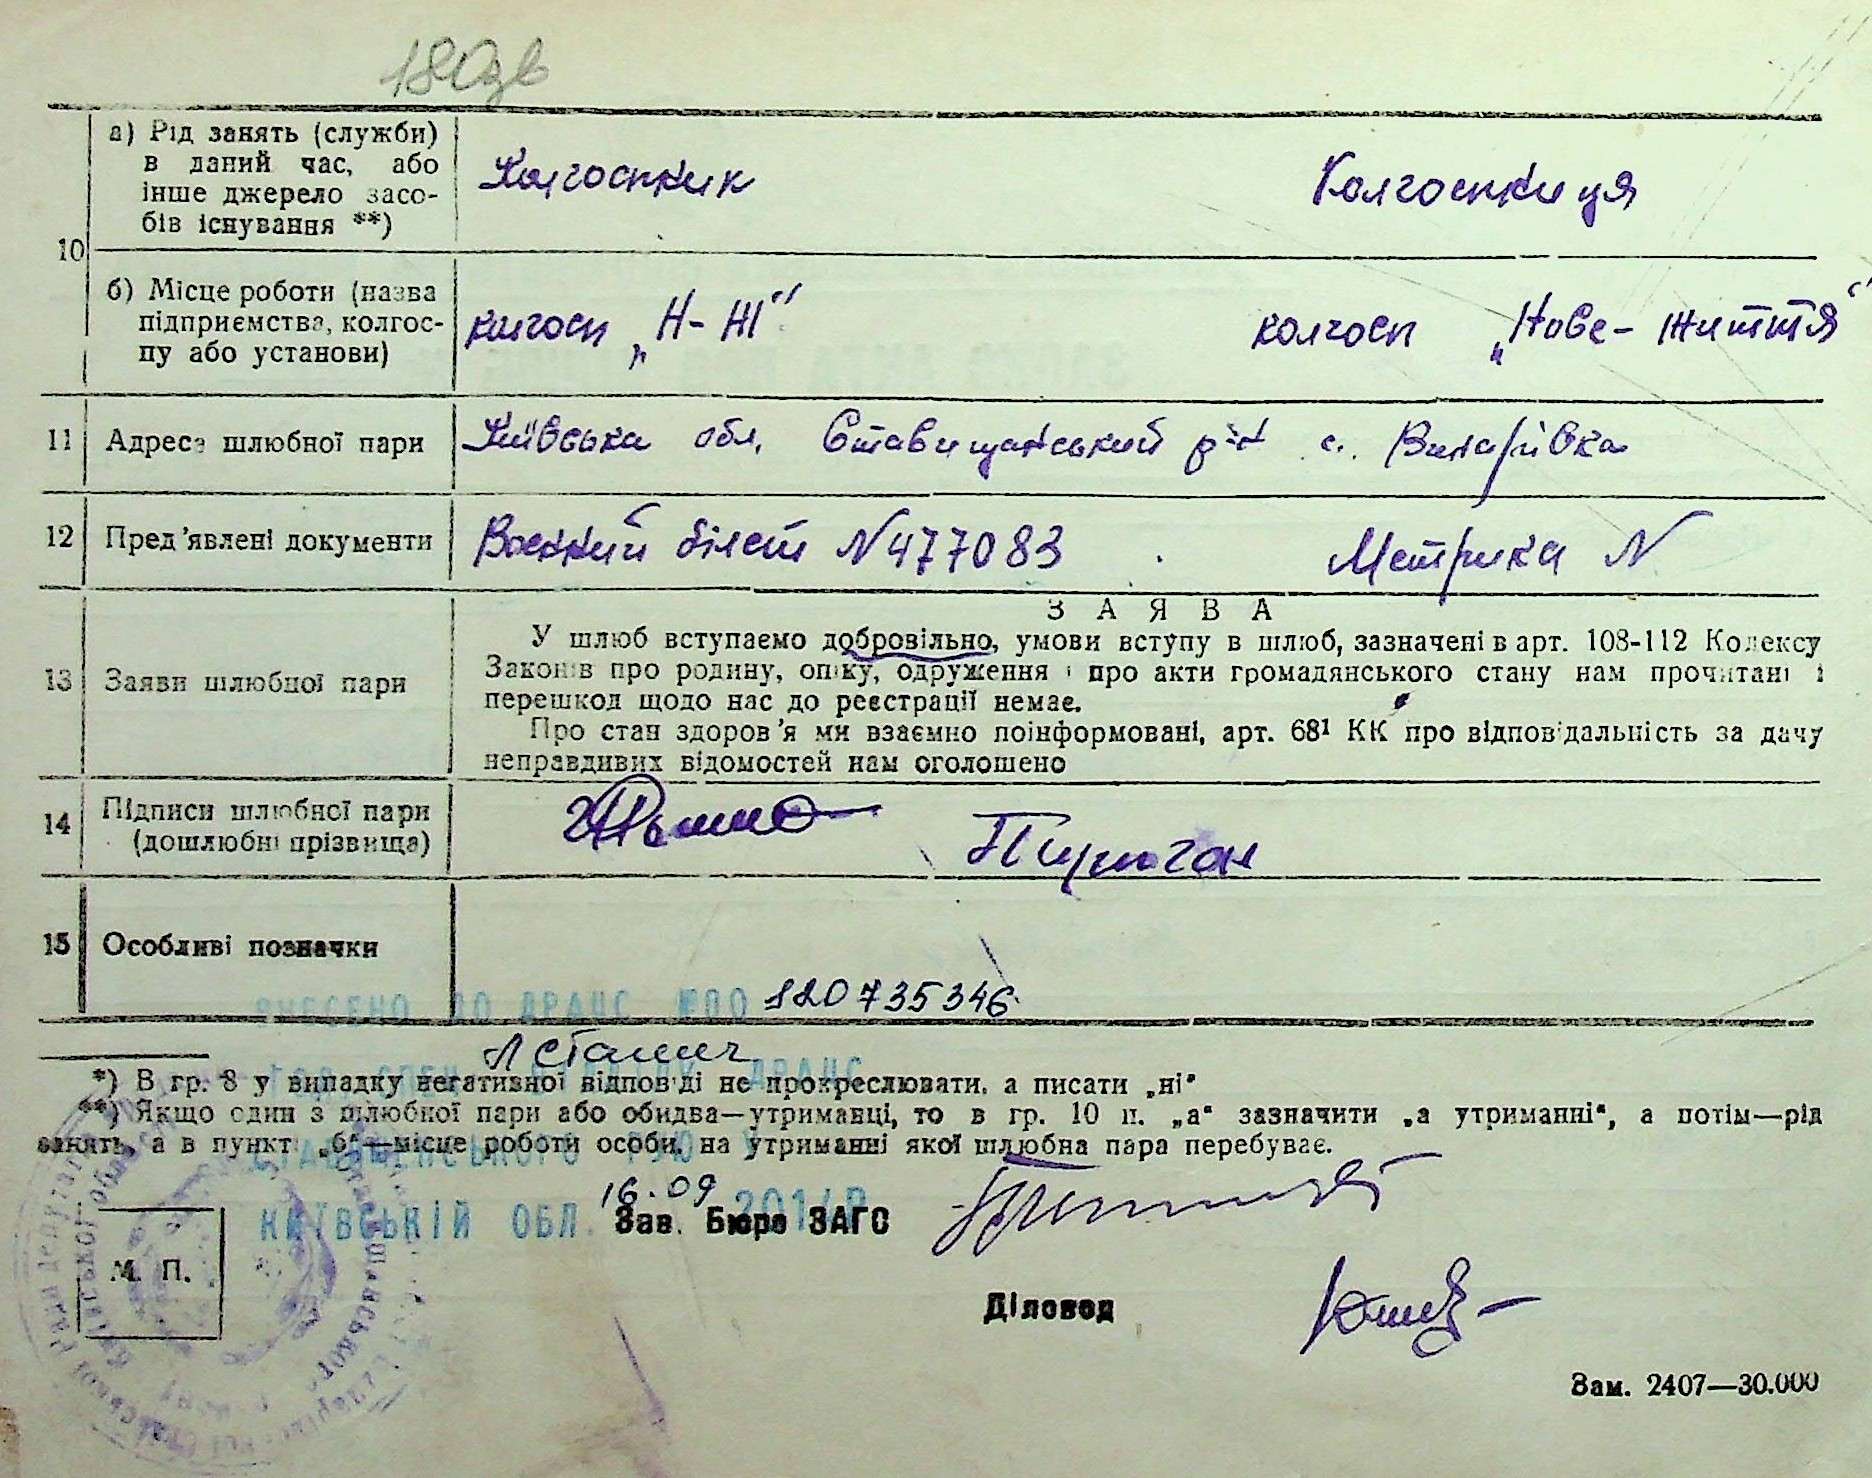 180зв
10
а) Рід занять (служби)
в даний час, або
інше джерело засо-
бів існування **)
Колгоспник
Колгоспниця
б) Місце роботи (назва
підприємства, колгос-
пу або установи)
колгосп „Н-Ж“
колгосп „Нове-життя“
11 Адреса шлюбної пари
Київська обл. Ставищанський р-н с. Винарівка
12 Пред'явлені документи
Воєнний білет N 477083
Метрика N
13 Заяви шлюбної пари
ЗАЯВА
У шлюб вступаємо добровільно, умови вступу в шлюб, зазначені в арт. 108-112 Кодексу
Законів про родину, опіку, одруження і про акти громадянського стану нам прочитані і
перешкод щодо нас до реєстрації немає.
Про стан здоров'я ми взаємно поінформовані, арт. 68¹ КК про відповідальність за дачу
неправдивих відомостей нам оголошено
14 Підписи шлюбної пари
(дошлюбні прізвища)
15 Особливі позначки
ВНЕСЕНО ДО ДРАЦС №00 120735346
*) В гр. 8 у випадку негативної відповіді не прокреслювати, а писати „ні“
**) Якщо один з шлюбної пари або обидва—утриманці, то в гр. 10 п. „а“ зазначити „а утриманні“, а потім—рід
занять, а в пункті „б“—місце роботи особи, на утриманні якої шлюбна пара перебуває.
16.09 2014Р
КИЇВСЬКІЙ ОБЛ.
Зав. Бюро ЗАГС
М. П.
Діловод
Зам. 2407—30.000